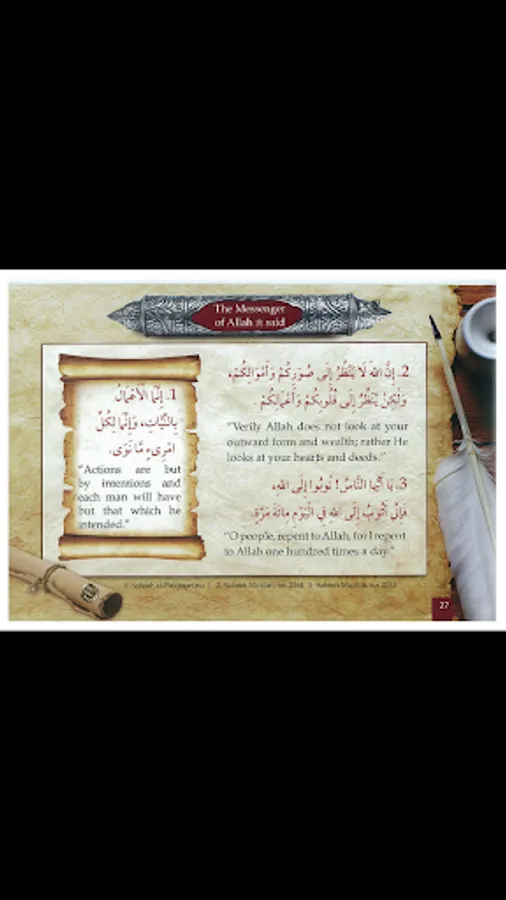 The Messenger
of Allah ﷺ said
1. إِنَّمَا الْأَعْمَالُ
بِالنِّيَّاتِ، وَإِنَّمَا لِكُلِّ
امْرِىءٍ مَّا نَوَى.
"Actions are but
by intentions and
each man will have
but that which he
intended."
2. إِنَّ اللهَ لَا يَنْظُرُ إِلَى صُوَرِكُمْ وَأَمْوَالِكُمْ،
وَلَكِنْ يَنْظُرُ إِلَى قُلُوبِكُمْ وَأَعْمَالِكُمْ.
"Verily Allah does not look at your
outward form and wealth; rather He
looks at your hearts and deeds."
3. يَا أَيُّهَا النَّاسُ! تُوبُوا إِلَى اللهِ،
فَإِنِّي أَتُوبُ إِلَى اللهِ فِي الْيَوْمِ مِائَةَ مَرَّةٍ.
"O people, repent to Allah, for I repent
to Allah one hundred times a day."
27